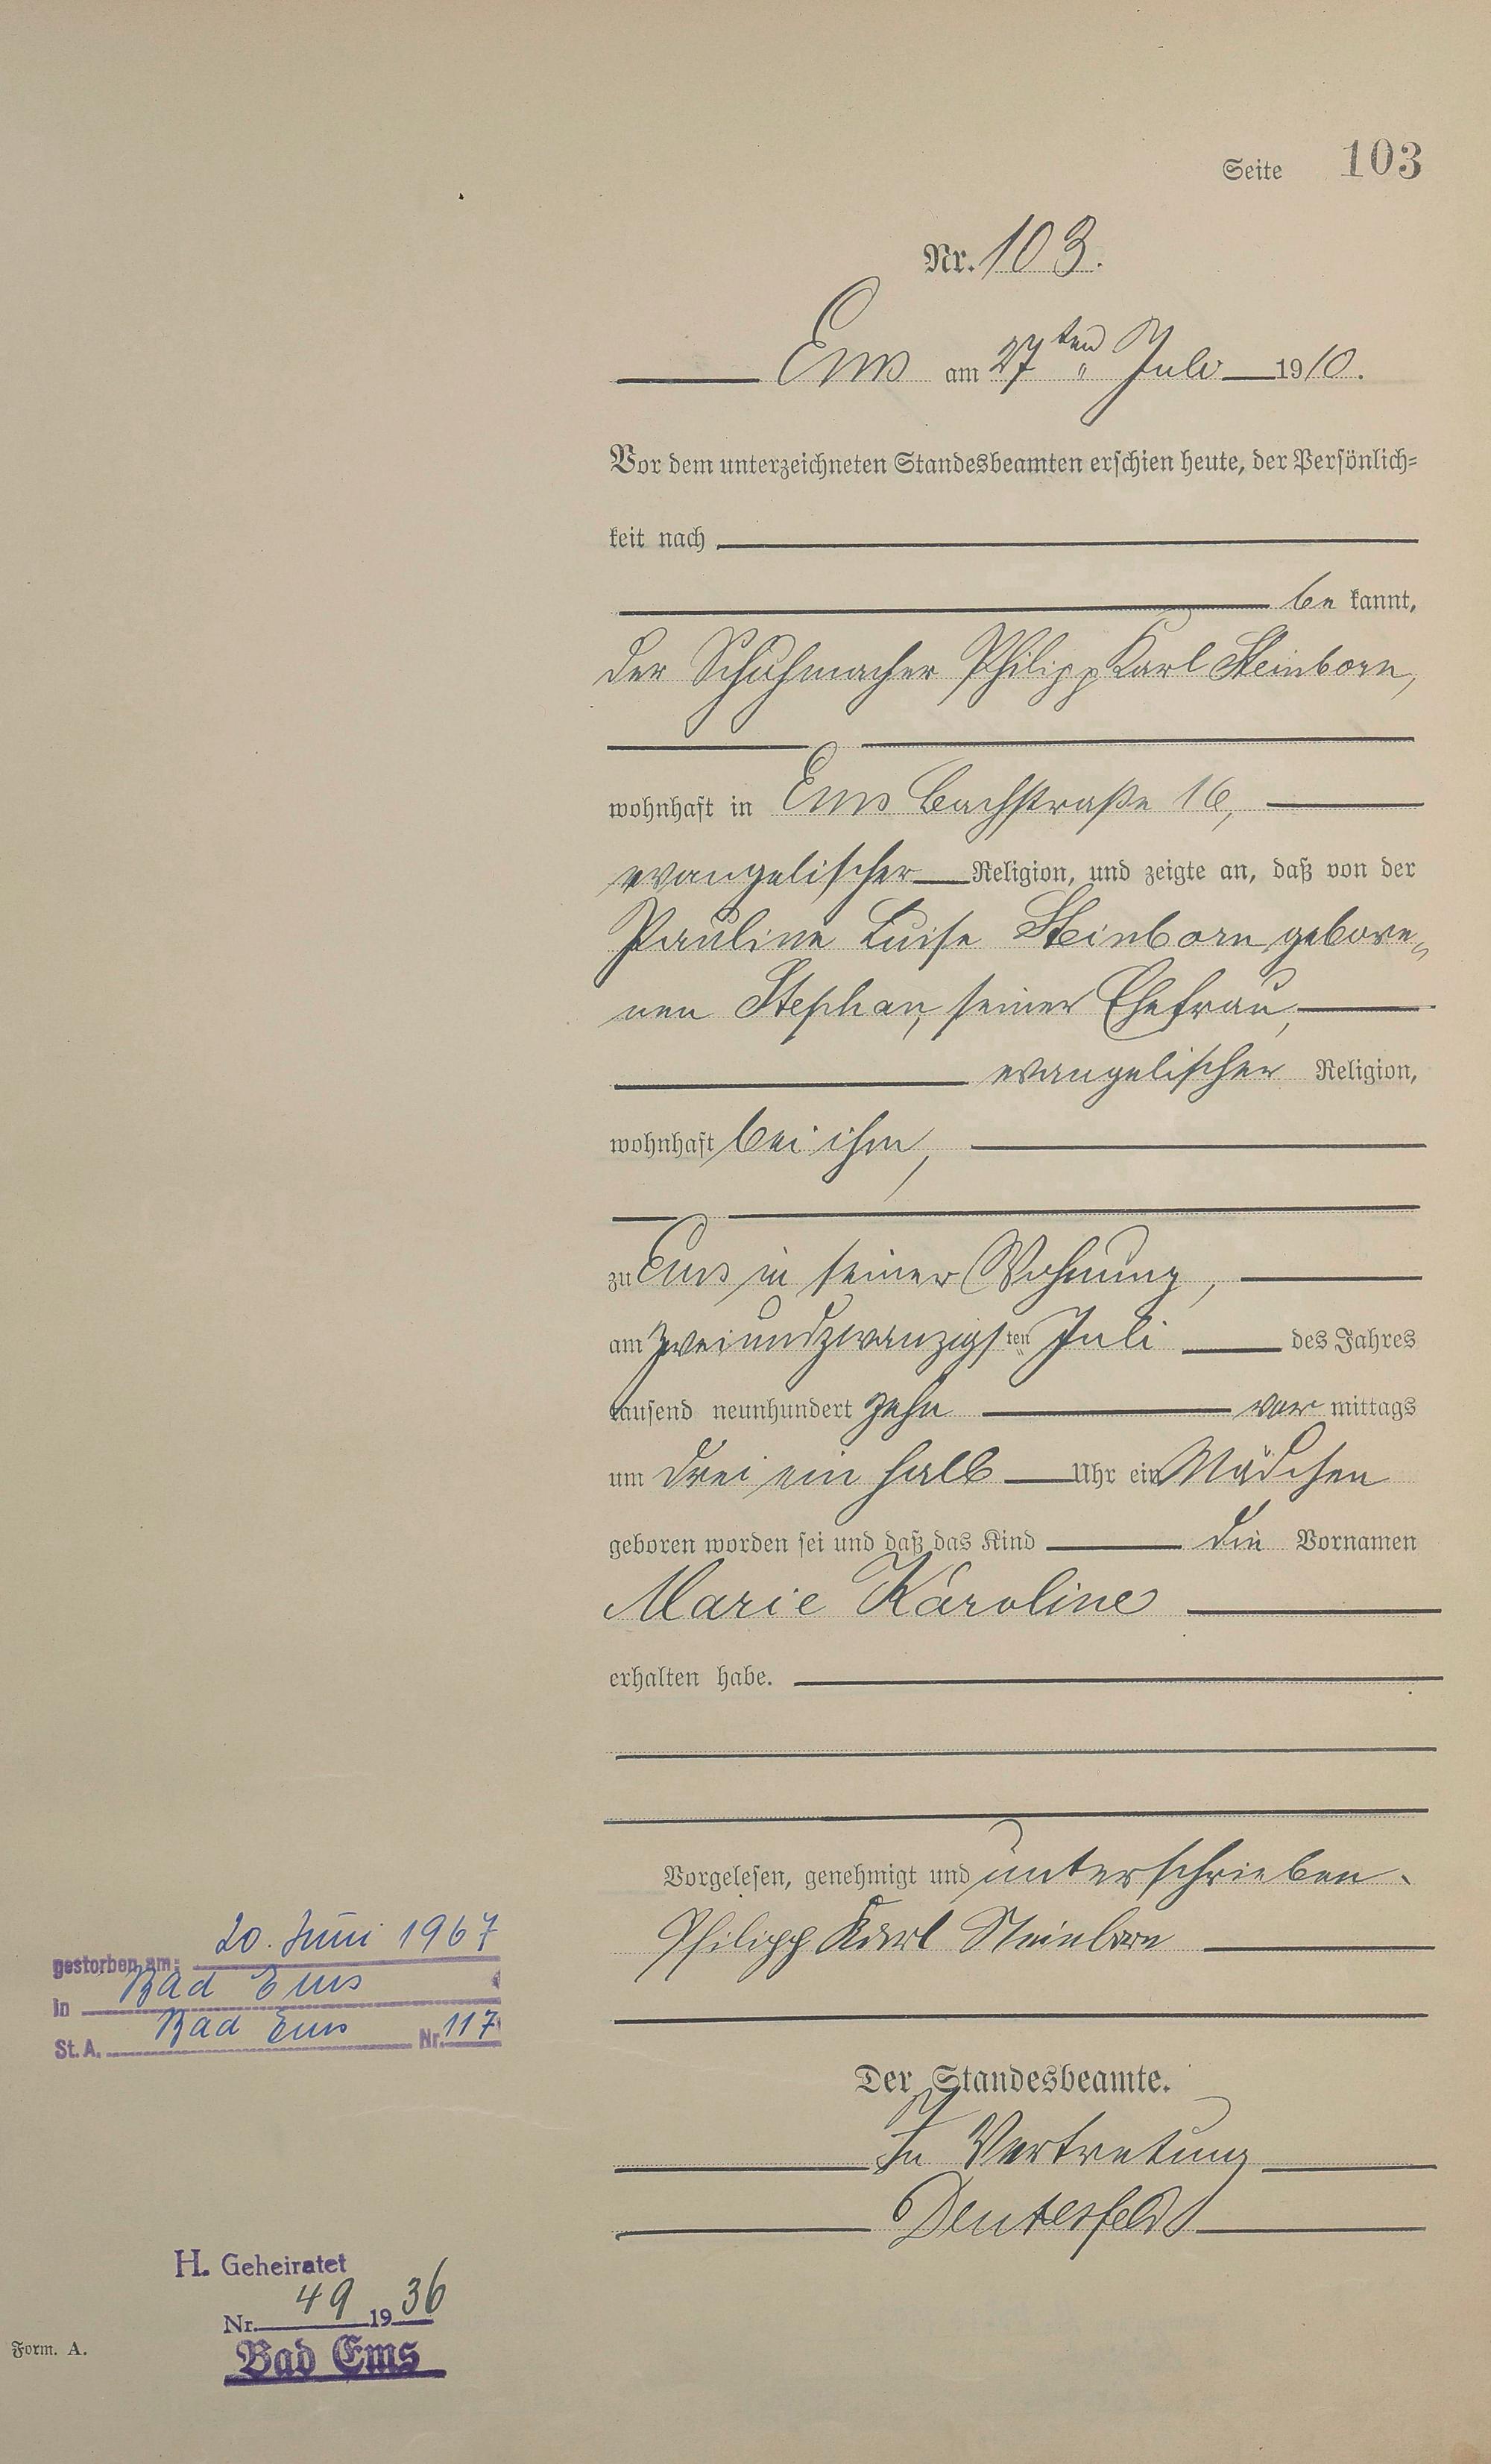 Seite 103
Nr. 103.
Ems am 27ten Juli 1910.
Vor dem unterzeichneten Standesbeamten erschien heute, der Persönlich=
keit nach
be kannt,
der Schuhmacher Philipp Karl Steinborn,
wohnhaft in Ems Bachstraße 16,
evangelischer Religion, und zeigte an, daß von der
Pauline Luise Steinborn gebore„
nen Stephan, seiner Ehefrau,
evangelischer Religion,
wohnhaft bei ihm,
zu Ems in seiner Wohnung,
am zweiundzwanzigsten Juli des Jahres
tausend neunhundert zehn vor mittags
um drei ein halb Uhr ein Mädchen
geboren worden sei und daß das Kind die Vornamen
Marie Karoline
erhalten habe.
Vorgelesen, genehmigt und unterschrieben.
Philipp Karl Steinborn
Der Standesbeamte.
In Vertretung
gestorben am: 20. Juni 1967
in Bad Ems
St. A. Bad Ems Nr. 117
H. Geheiratet
Nr. 49 1936
Bad Ems
Form. A.